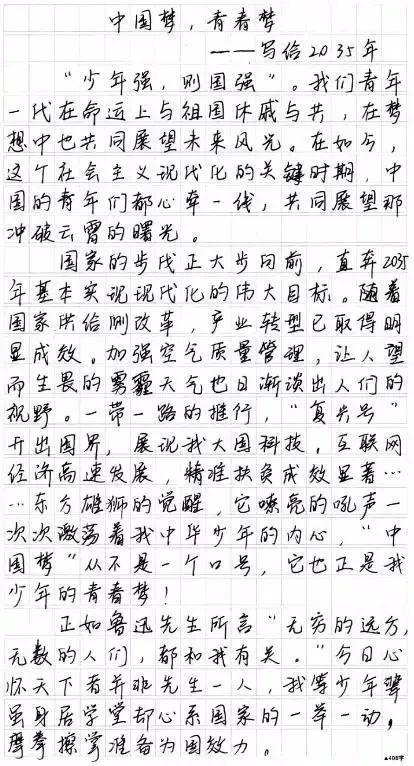 中国梦，青春梦
——写给2035年
“少年强，则国强”。我们青年
一代在命运上与祖国休戚与共，在梦
想中也共同展望未来风光。在如今，
这个社会主义现代化的关键时期，中
国的青年们都心牵一线，共同展望那
冲破云霄的曙光。
国家的步伐正大步向前，直奔2035
年基本实现现代化的伟大目标。随着
国家供给侧改革，产业转型已取得明
显成效。加强空气质量管理，让人望
而生畏的雾霾天气也日渐淡出人们的
视野。一带一路的推行，“复兴号”
开出国界，展现我大国科技。互联网
经济高速发展，精准扶贫成效显著…
…东方雄狮的觉醒，它嘹亮的吼声一
次次激荡着我中华少年的内心，“中
国梦”从不是一个口号，它也正是我
少年的青春梦！
正如鲁迅先生所言“无穷的远方，
无数的人们，都和我有关。”今日心
怀天下者并非先生一人，我等少年辈
虽身居学堂却心系国家的一举一动，
摩拳擦掌准备为国效力。
▲400字